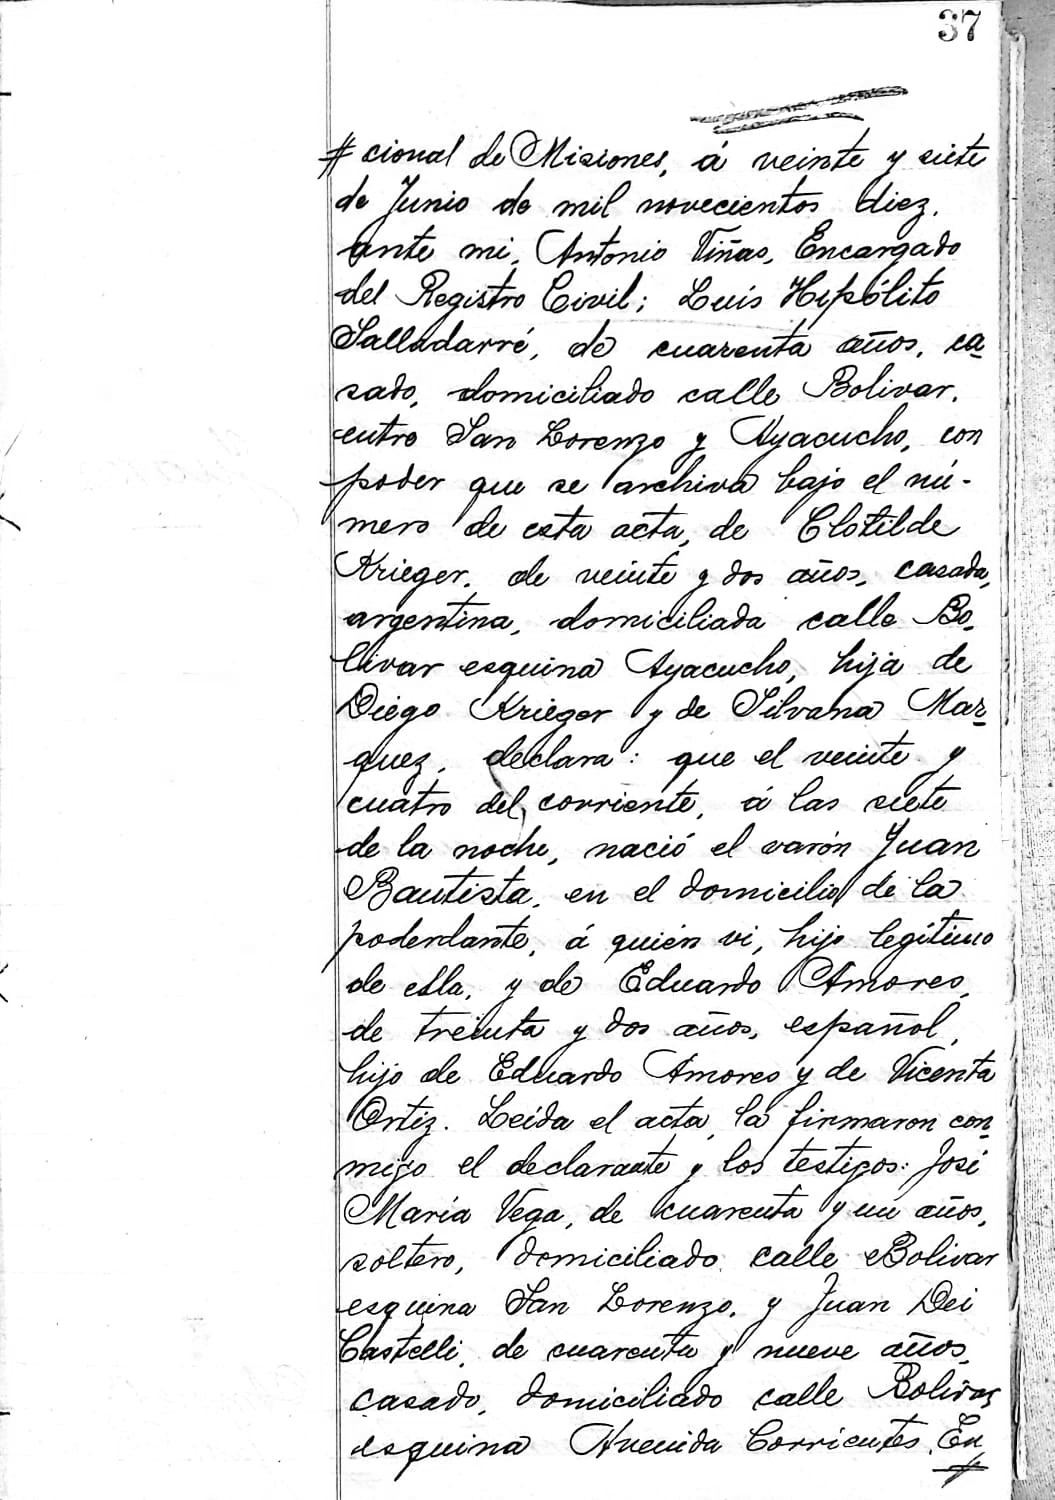 37
# cional de Misiones, á veinte y siete
de Junio de mil novecientos diez,
ante mi, Antonio Viñas, Encargado
del Registro Civil; Luis Hipólito
Salladarré, de cuarenta años, ca
sado, domiciliado calle Bolivar,
entre San Lorenzo y Ayacucho, con
poder que se archiva bajo el nú-
mero de esta acta, de Clotilde
Krieger, de veinte y dos años, casada,
argentina, domiciliada calle Bo-
livar esquina Ayacucho, hija de
Diego Krieger y de Silvana Mar
quez, declara: que el veinte y
cuatro del corriente, á las siete
de la noche, nació el varón Juan
Bautista, en el domicilio de la
poderdante, á quién vi, hijo legítimo
de ella, y de Eduardo Amores,
de treinta y dos años, español,
hijo de Eduardo Amores y de Vicenta
Ortiz. Leida el acta, la firmaron con
migo el declarante y los testigos: José
María Vega, de cuarenta y un años,
soltero, domiciliado calle Bolivar
esquina San Lorenzo, y Juan Dei
Castelli, de cuarenta y nueve años,
casado, domiciliado calle Bolivar
esquina Avenida Corrientes. En